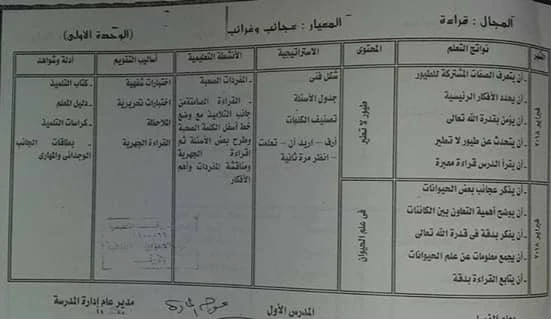 المجال : قراءة
المعيار : عجائب وغرائب
(الوحدة الأولى)
الشهر
نواتج التعلم
المحتوى
الاستراتيجية
الأنشطة التعليمية
أساليب التقويم
أدلة وشواهد
فبراير ٢٠١٨
ـ أن يتعرف الصفات المشتركة للطيور
ـ أن يحدد الأفكار الرئيسية
ـ أن يؤمن بقدرة الله تعالى
ـ أن يتحدث عن طيور لا تطير
ـ أن يقرأ الدرس قراءة معبرة
طيور لا تطير
شكل فنى
جدول الأسئلة
تصنيف الكلمات
أرف – اريد أن – تعلمت
– انظر مرة ثانية
ـ المفردات الصعبة
ـ القراءة الصامتة من
جانب التلاميذ مع وضع
خط أسفل الكلمة الصعبة
وطرح بعض الأسئلة ثم
القراءة الجهرية
ومناقشة المفردات وأهم
الأفكار
اختبارات شفهية
اختبارات تحريرية
الملاحظة
القراءة الجهرية
ـ كتاب التلميذ
ـ دليل المعلم
ـ كراسات التلميذ
ـ بطاقات الجانب
الوجدانى والمهارى
فبراير ٢٠١٨
ـ أن يذكر عجائب بعض الحيوانات
ـ أن يوضح أهمية التعاون بين الكائنات
ـ أن يفكر بدقة فى قدرة الله تعالى
ـ أن يجمع معلومات عن علم الحيوانات
ـ أن يتابع القراءة بدقة
فى علم الحيوان
المدرس الأول
مدير عام إدارة المدرسة